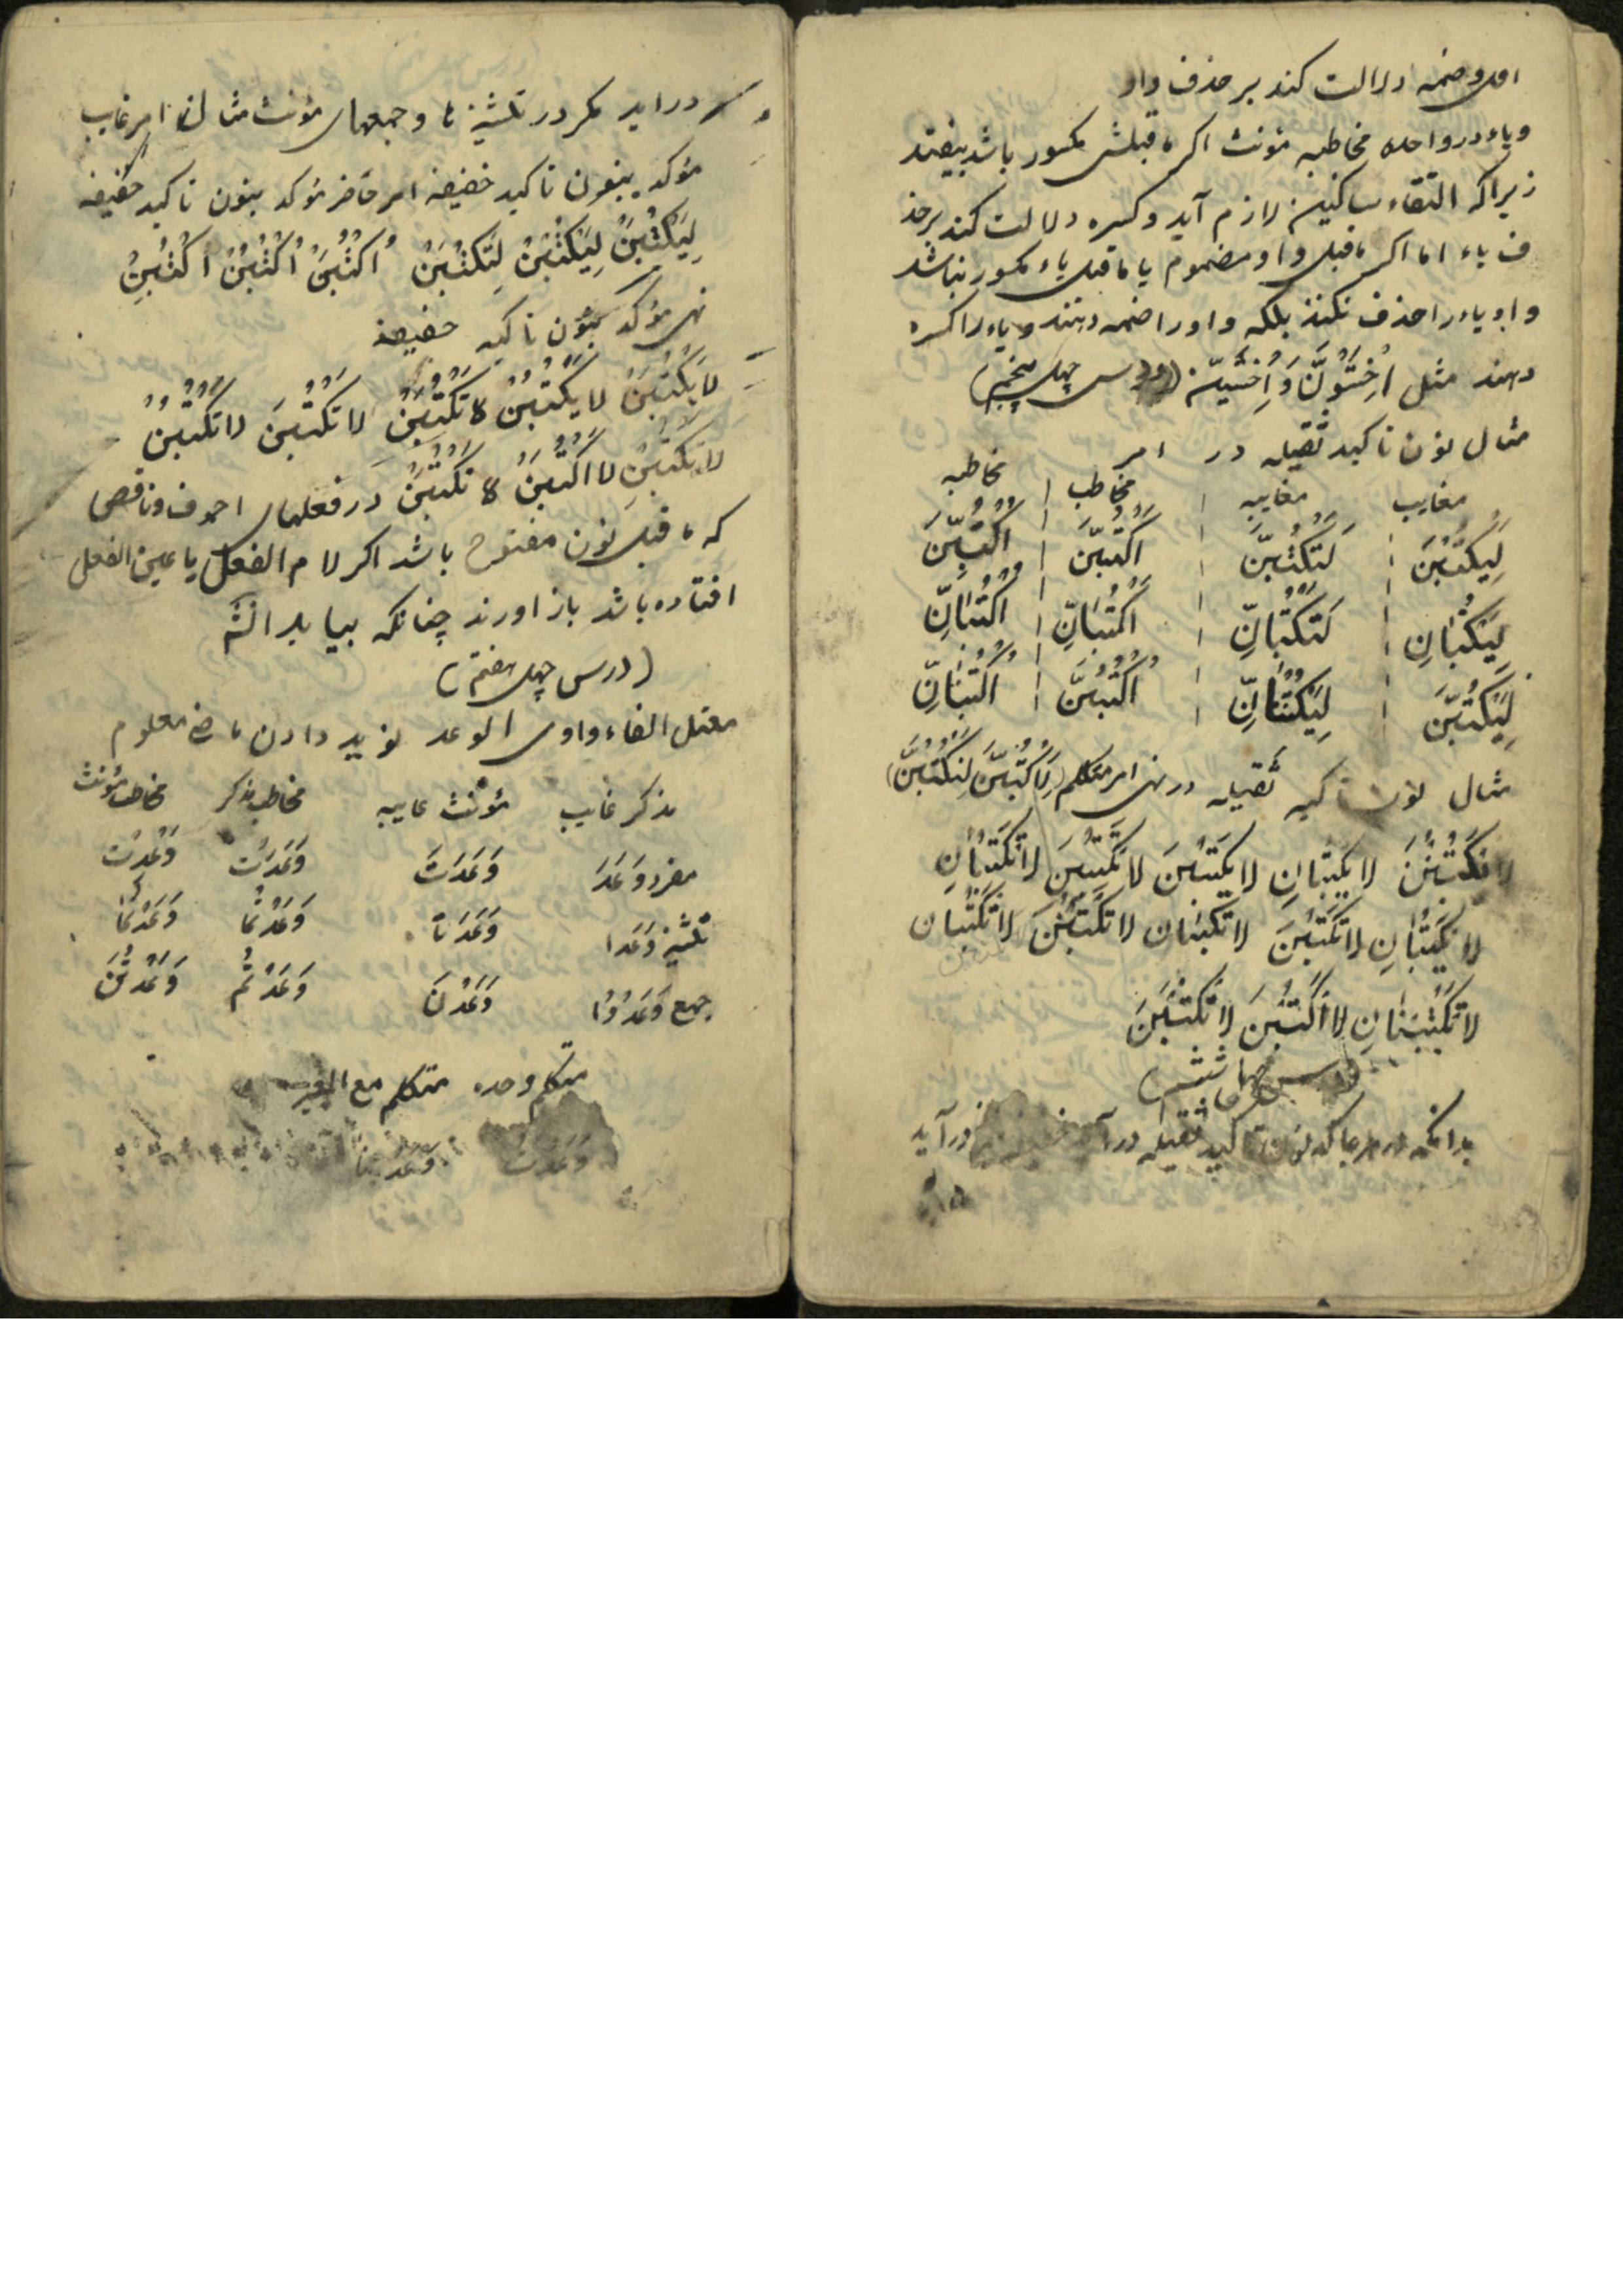 افتد و ضمه دلالت کند بر حذف واو
و یاء در واحده مخاطبه مؤنث اکر ماقبلش مکسور باشد بیفتد
زیراکه التقاء ساکنین لازم آید و کسره دلالت کند برحذ
ف یاء اما اکر ماقبل واو مضموم یا ماقبل یاء مکسور نباشد
واو یاء را حذف نکنند بلکه واو را ضمه دهند و یاء را کسره
دهند مثل اُخِشَوُنَّ وَ اِخْشَیِنّ (درس چهل پنجم)
مثال نون تاکید ثقیله در امر
مغایب مغایبه مخاطب مخاطبه
لِیَکْتُبَنَّ لَتَکْتُبَنّ اُکْتُبَنّ اُکْتُبِنّ
لِیَکْتُبٰانِ لَتَکْتُبٰانِّ اُکْتُبٰانِّ اُکْتُبٰانِّ
لِیَکْتُبُنَّ لِیَکْتُبْنٰانِّ اُکْتُبُنَّ اُکْتُبْنٰانِّ
مثال نون تاکید ثقیله در نهی امر متکلم (لِاَکْتُبَنَّ لِنَکْتُبَنَّ)
لا یَکْتُبَنَّ لا یکتبانِ لا یکتبُنَ لا تکتبَنَ لا تکتبٰانِ
لا یکتبْنٰانِ لا تکتبَنَ لا تکتبٰان لا تکتبُنَ لا تکتبٰان
لا تکتبْنٰانِ لا اکتبَنَ لا نکتبَنَ
بدانکه در هرجا که نون تاکید ثقیله درآ درآید
دراید مکر در تثنیه ها و جمعهای مؤنث مثال امر غایب
مؤکد بنون تاکید خفیفه امر حاضر مؤکد بنون تاکید خفیفه
لِیَکْتُبَنْ لِیَکْتُبُنْ لِتَکْتُبَنْ اُکْتُبَنْ اُکْتُبُنْ اُکْتُبِنْ
نهی مؤکد بنون تاکید خفیفه
لا یَکْتُبَنْ لا یَکْتُبُنْ لا تَکْتُبَنْ لا تَکْتُبَنَ لا تَکْتُبُنْ
لا تَکْتُبِنْ لا اَکْتُبَنْ لا نَکْتُبَنْ در فعلهای اجوف و ناقص
که ماقبل نون مفتوح باشد اکر لام الفعل یا عین الفعل
افتاده باشد باز اورند چنانکه بیاید انش
(درس چهل هفتم)
معتل الفاء واوی الوعد نوید دادن ماضی معلوم
مذکر غایب مؤنث غایبه مخاطب مذکر مخاطب مؤنث
مفرد وَعَدَ وَعَدَتْ وَعَدْتَ وَعَدْتِ
تثنیه وَعَدا وَعَدَتا وَعَدْتُما وَعَدْتُما
جمع وَعَدُوا وَعَدْنَ وَعَدْتُمْ وَعَدْتُنَّ
متکلم وحده متکلم مع الغیر
وَعَدْتُ وَعَدْنا